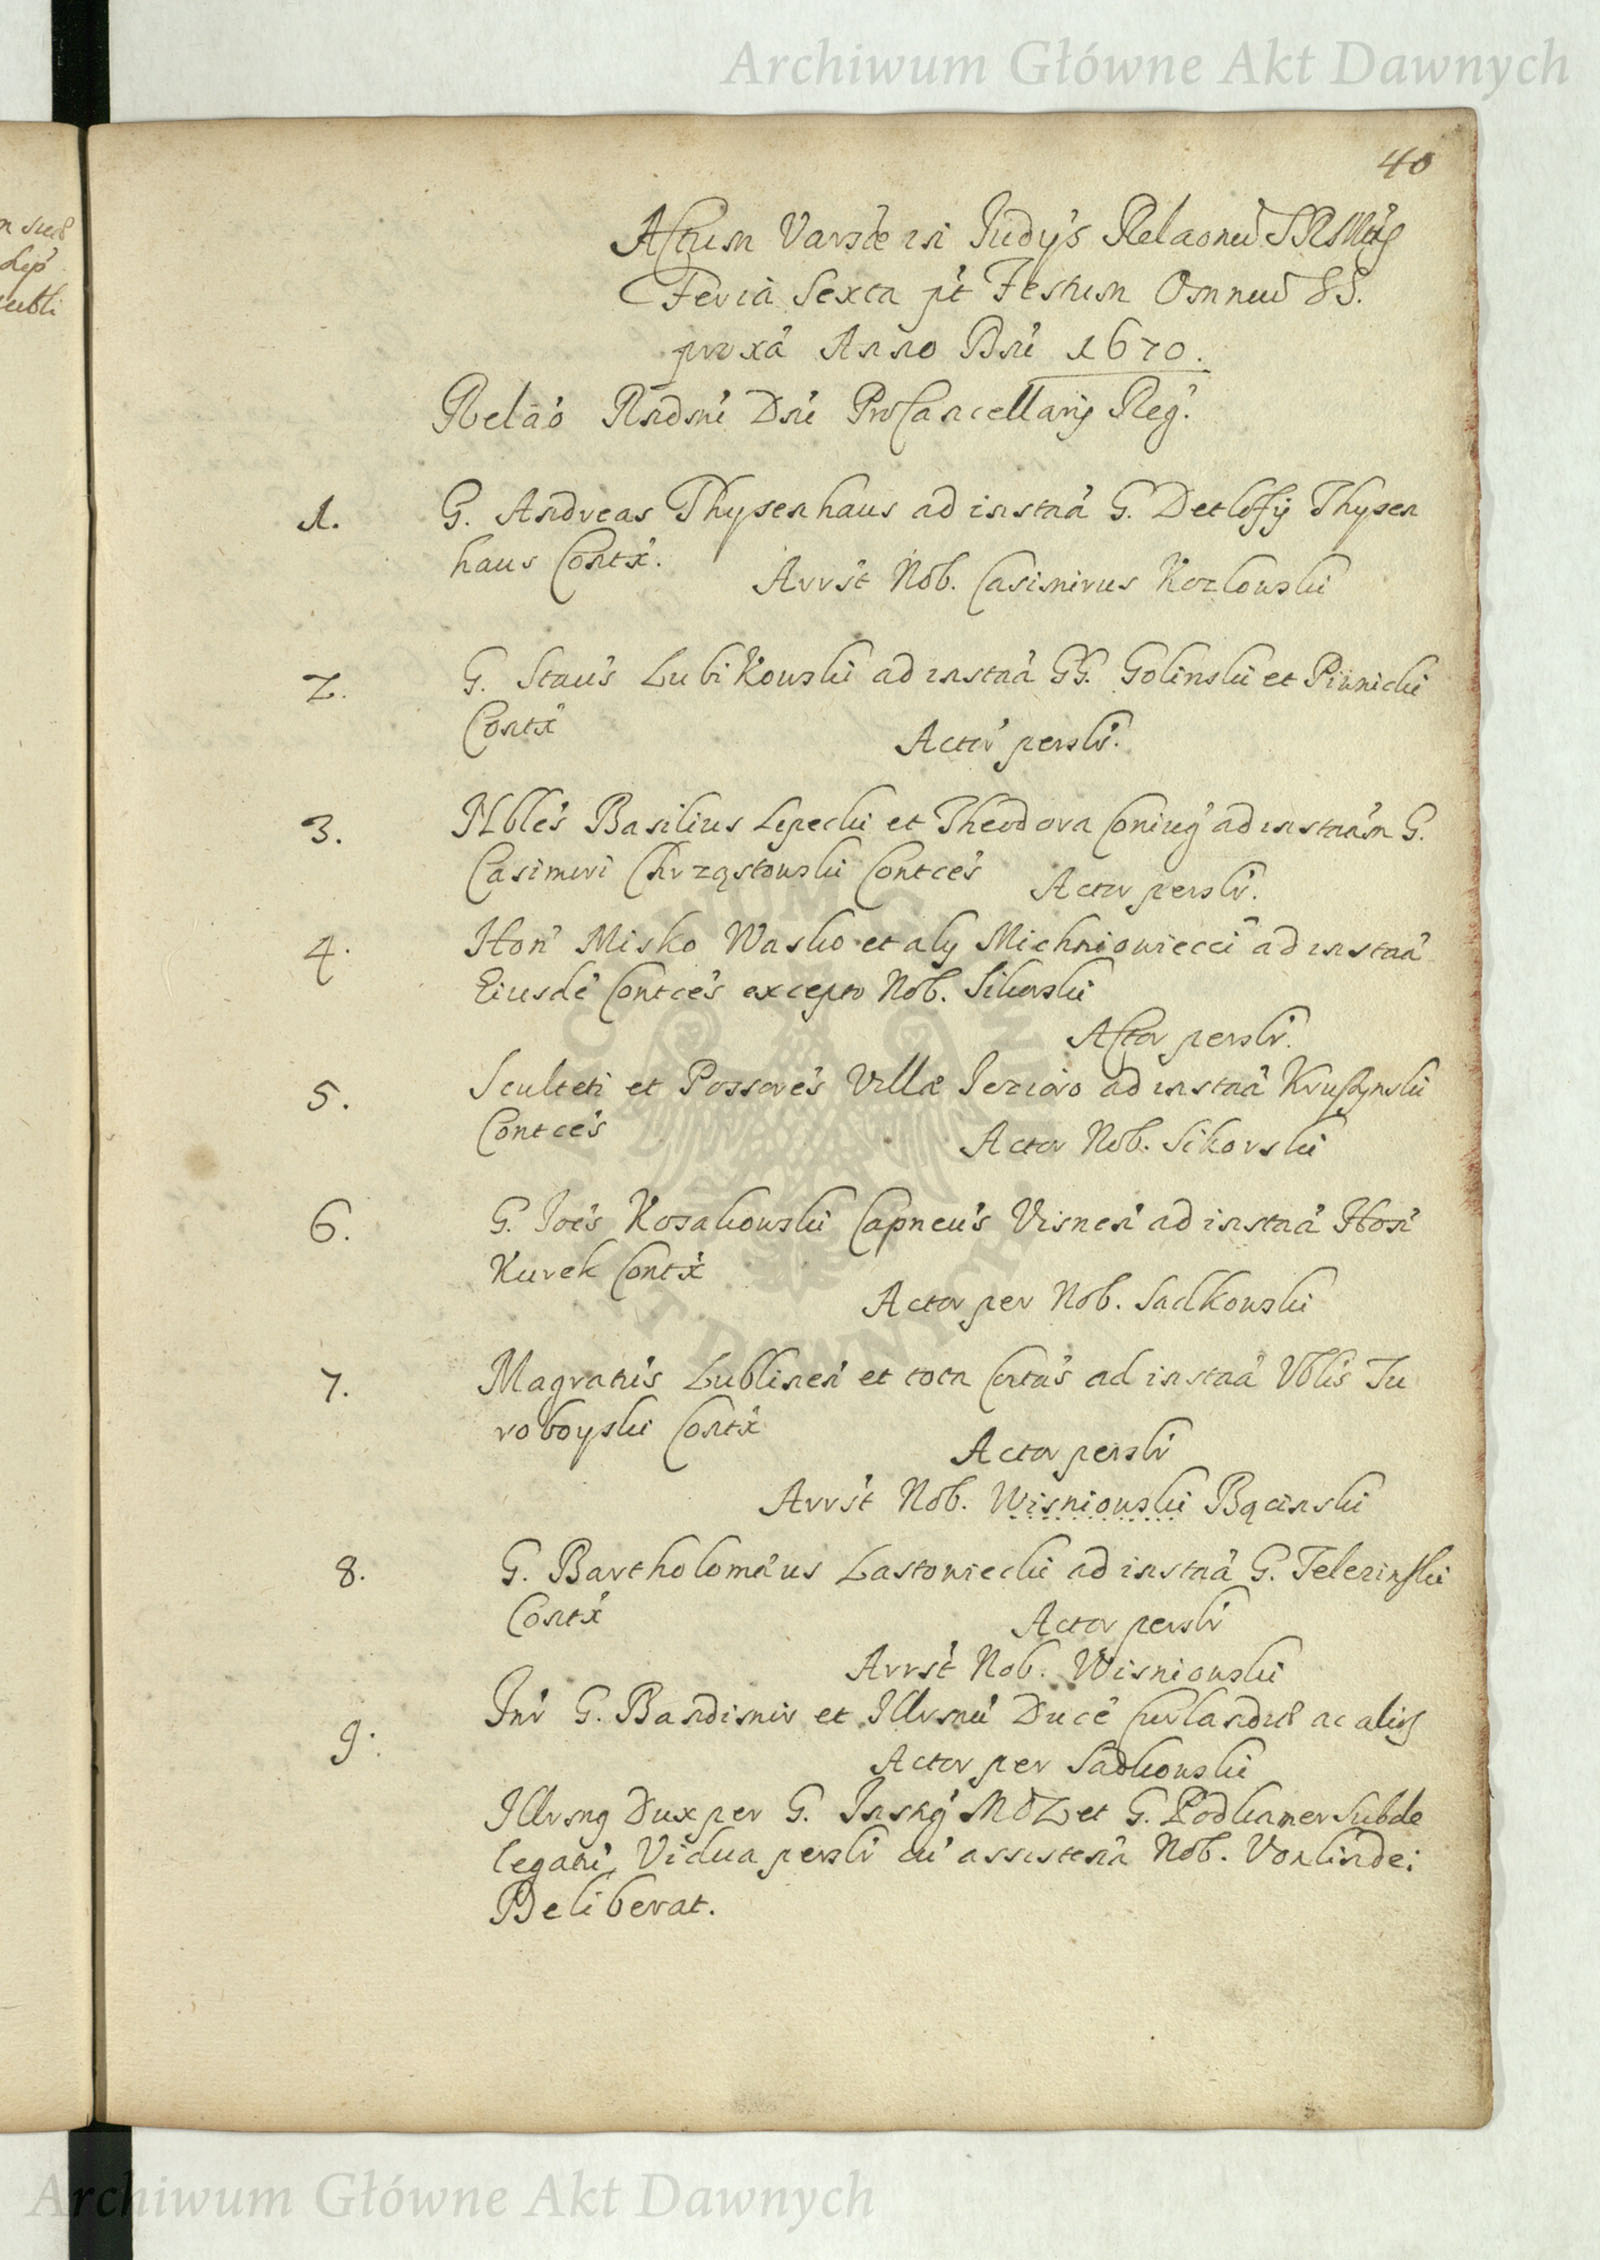 Archiwum Główne Akt Dawnych
40
Actum Varsae in Judys Relaonu SRMtis
Feria Sexta pt Festum Omniu SS.
proxa Anno Dni 1670.
Relao Rndmi Dni ProCancellarij Reg.
1. G. Andreas Thysenhaus ad instna G. Detloffij Thysen
haus Contx.
Arrst Nob. Casimirus Kozlowski
2. G. Staus Lubikowski ad instna GG. Golinski et Piwnicki
Contx
Actor perslr.
3. Nbles Basilius Lepecki et Theodora Coniug ad instnam G.
Casimiri Chrząstowski Contces
Actor perslr.
4. Hon Misko Wasko et alij Michniowiecci ad instna
Eiusde Contces excepto Nob. Sikorski
Actor perslr.
5. Sculteti et Possores Villae Jezioro ad instna Kruszynski
Contces
Actor Nob. Sikorski
6. G. Joes Kossakowski Capneus Visnen ad instna Hon
Kurek Contx
Actor per Nob. Sadkowski
7. Magratus Lublinen et tota Cotas ad instna Nblis Tu
roboyski Contx
Actor perslr
Arrst Nob. Wisniowski Bącinski
8. G. Bartholomaeus Lastowiecki ad instna G. Telezinski
Contx
Actor perslr
Arrst Nob. Wisniowski
9. Inr G. Bandimir et Illrsmu Duce Curlandiae ac alios
Actor per Sadkowski
Illrsmg Dux per G. Instig MDL et G. Podkamer Subde
legatu, Vidua perslr cu assistena Nob. Vonlinde:
Deliberat.
Archiwum Główne Akt Dawnych